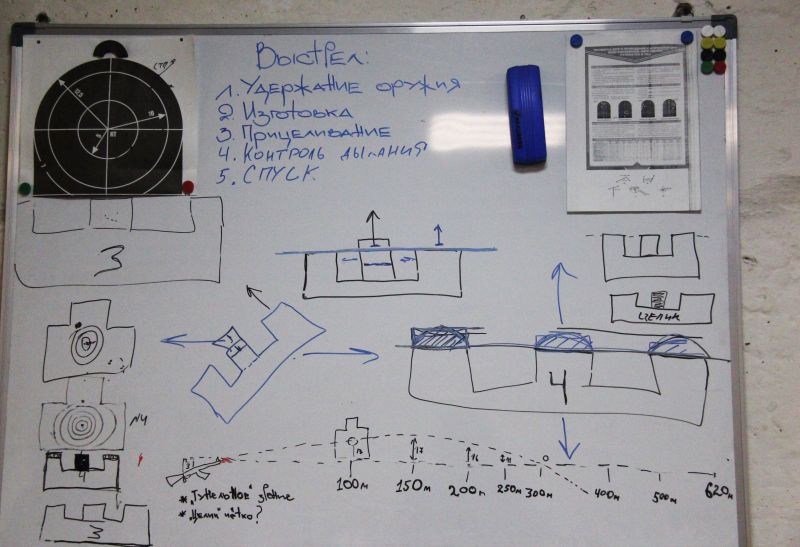 Выстрел:
1. Удержание оружия
2 Изготовка
3. Прицеливание
4. Контроль дыхания
5. Спуск
СТП
10
3
целик
4
№4
4
3
17
16
11
0
100м
150м
200м
250м
300м
400м
500м
620м
* "Тунельное" зрение
* "Целик" чётко?